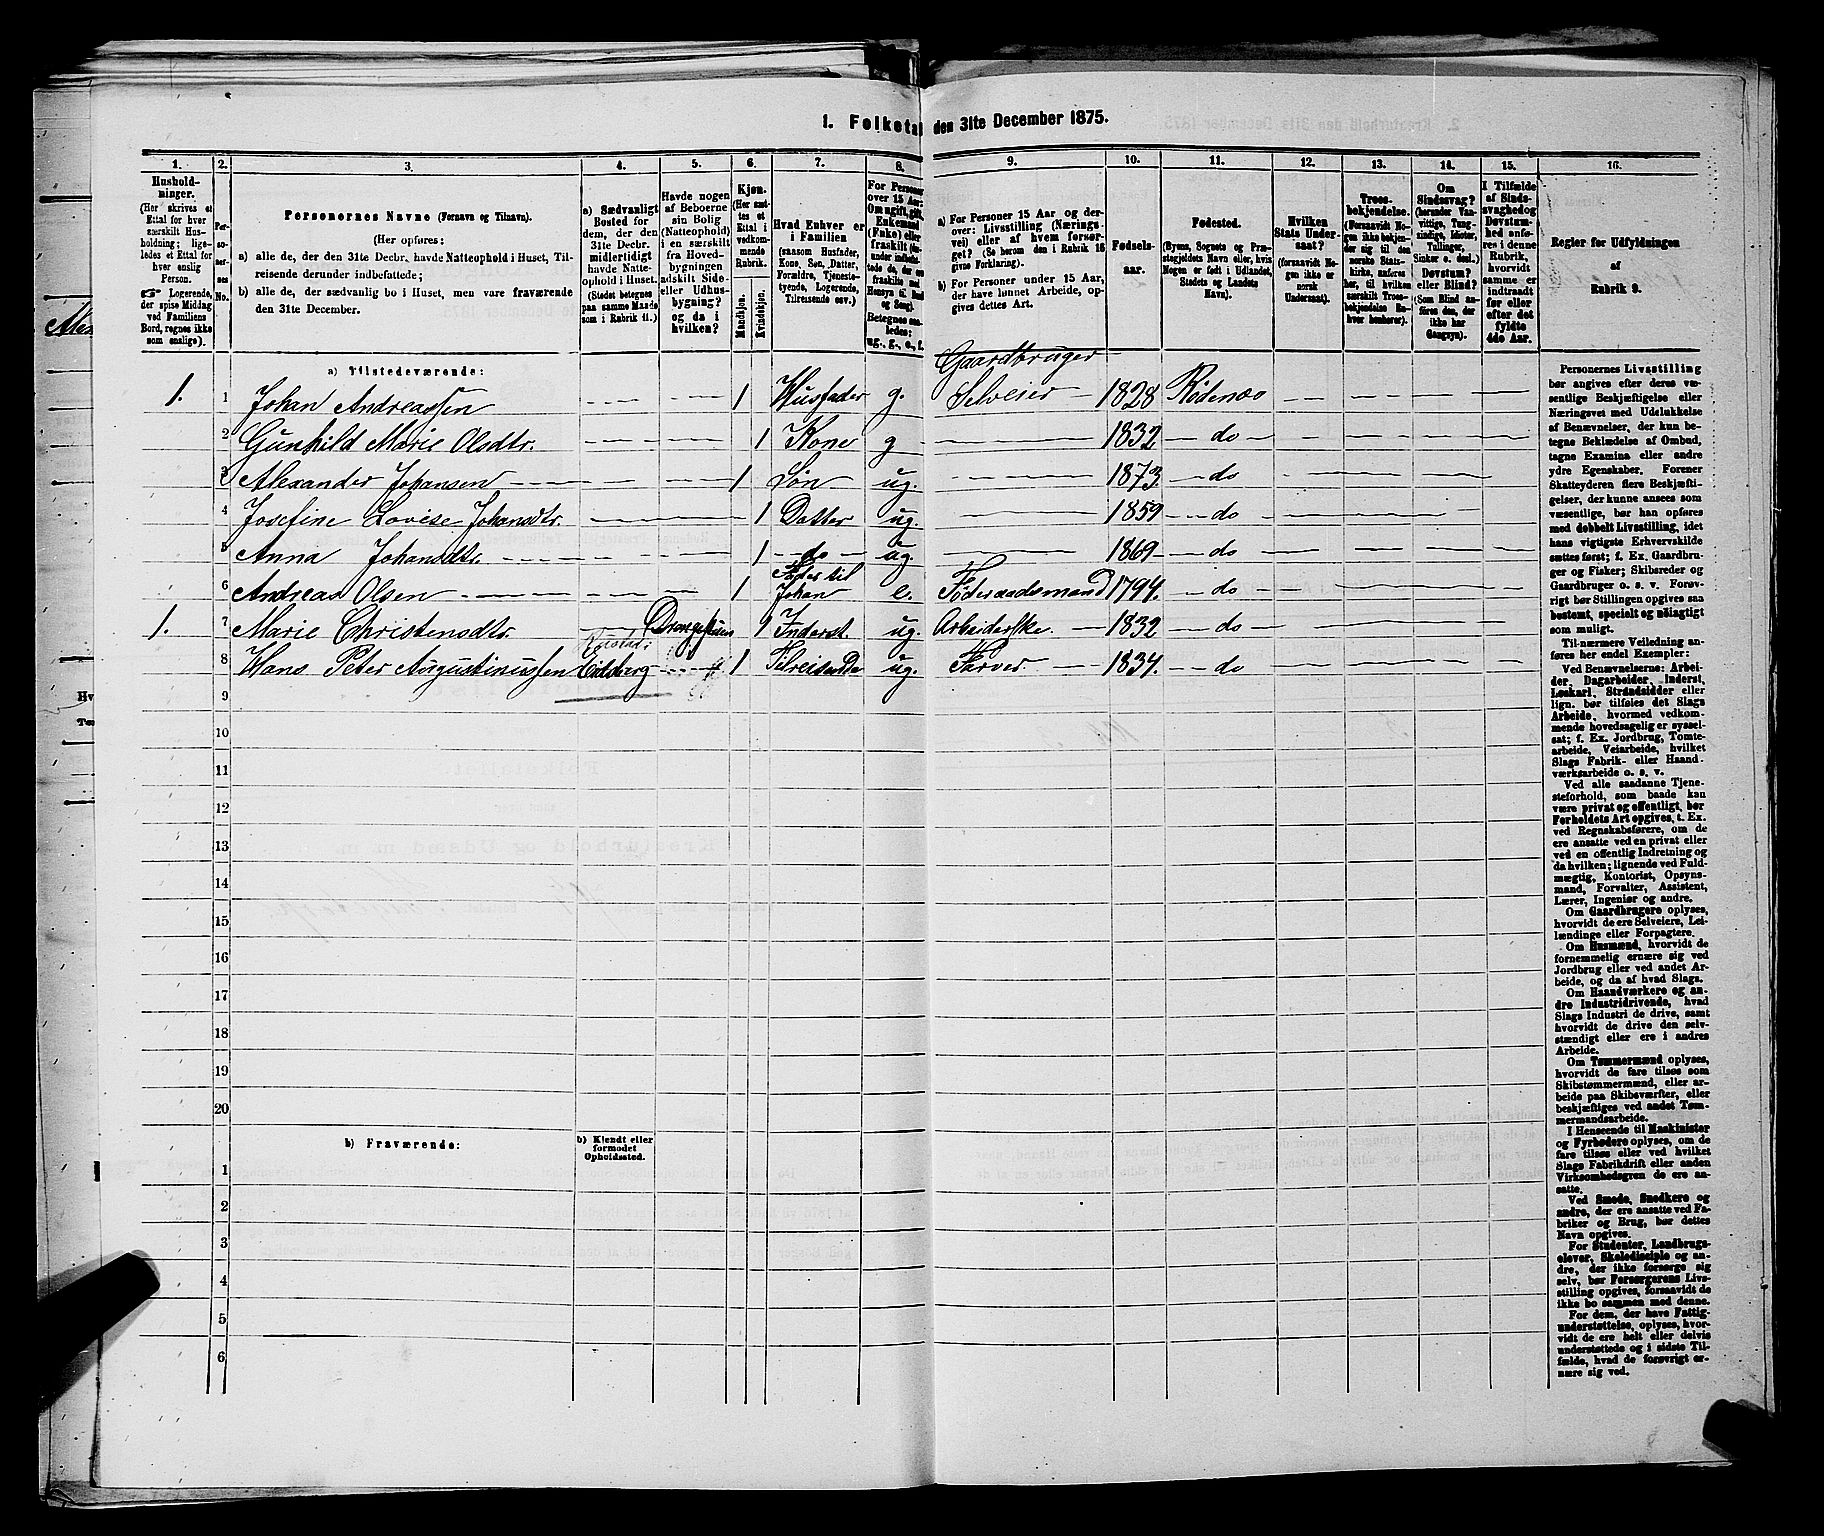 1. Folketal den 31te December 1875.
1. 2. 3. 4. 5. 6. 7. 8. 9. 10. 11. 12. 13. 14. 15. 16.
Hushold-
ninger.
(Her skrives et
Ettal for hver
særskilt Hus-
holdning; lige-
ledes et Ettal for
hver enslig
Person.
Logerende,
der spise Middag
ved Familiens
Bord, regnes ikke
som enslige).
Personernes No.
Personernes Navne (Fornavn og Tilnavn).
(Her opføres:
a) alle de, der den 31te Decbr. havde Natteophold i Huset, Til-
reisende derunder indbefattede;
b) alle de, der sædvanlig bo i Huset, men vare fraværende
den 31te December.
a) Sædvanligt
Bosted for
dem, der den
31te Decbr.
midlertidigt
havde Natte-
ophold i Huset.
(Stedet betegnes
paa samme Maade
som i Rubrik 11.)
Havde nogen
af Beboerne
sin Bolig
(Natteophold)
i en særskilt
fra Hoved-
bygningen
adskilt Side-
eller Udhus-
bygning?
og da i
hvilken?
Kjøn.
(Her sæt-
tes et
Ettal i
vedkom-
mende
Rubrik.
Mandkjøn.
Kvindekjøn.
Hvad Enhver er
i Familien
(saasom Husfader,
Kone, Søn, Datter,
Forældre, Tjeneste-
tyende, Logerende,
Tilreisende osv.)
For Personer
over 15 Aar:
Om ugift, gift,
Enkemand
(Enke) eller
fraskilt
Betegnes saa-
ledes:
ug., g., e., f.
a) For Personer 15 Aar og der-
over: Livsstilling (Nærings-
vei) eller af hvem forsør-
get? (Se herom den i Rubrik 16
givne Forklaring).
b) For Personer under 15 Aar,
der have lønnet Arbeide, op-
gives dettes Art.
Fødsels-
aar.
Fødested.
(Byens, Sognets og Præ-
stegjeldets Navn eller, hvis
Nogen er født i Udlandet,
Stedets og Landets
Navn).
Hvilken
Stats Under-
saat?
(forsaavidt No-
gen ikke er
norsk
Undersaat).
Troes-
bekjendelse.
(Forsaavidt No-
gen ikke bekjen-
der sig til den
norske Stats-
kirke, anføres
her, til hvilken
særskilt Troes-
bekjendelse En-
hver henhører).
Om
Sindssvag?
(herunder Van-
vittige, Tung-
sindige, Idioter,
Tullinger,
Sinker o. desl.)
Døvstum?
eller Blind?
(Som Blind an-
føres den, der
ikke har
Gangsyn).
I Tilfælde
af Sinds-
svaghed og
Døvstum-
hed anfø-
res i denne
Rubrik,
hvorvidt
samme er
indtraadt
før eller
efter det
fyldte
4de Aar.
Regler for Udfyldningen
af
Rubrik 9.
a) Tilstedeværende:
Gaardbruger
1. 1 Johan Andreassen 1 Husfader g. Selveier 1828 Rødenæs
2 Gunhild Marie Olsdtr. 1 Kone g 1832 do
3 Alexander Johansen 1 Søn ug. 1873 do
4 Josefine Lovise Johansdtr. 1 Datter ug. 1859 do
5 Anna Johansdtr. 1 do ug. 1869 do
6 Andreas Olsen 1 Fader til Johan e. Føderaadsmand 1794. do
1. 7 Marie Christensdtr. 1 Inderst. ug. Arbeiderske. 1832 do
8 Hans Peter Augustinussen Eidsberg 1 Tilreisende ug. Farver 1834. do
9
10
11
12
13
14
15
16
17
18
19
20
b) Fraværende: b) Kjendt eller
formodet
Opholdssted.
1
2
3
4
5
6
Personernes Livsstilling
bør angives efter deres væ-
sentlige Beskjæftigelse eller
Næringsvei med Udelukkelse
af Benævnelser, der kun be-
tegne Beklædelse af Ombud,
tagne Examina eller andre
ydre Egenskaber. Forener
Skatteyderen flere Beskjæfti-
gelser, der kunne ansees som
væsentlige, bør han opføres
med dobbelt Livsstilling, idet
hans vigtigste Erhvervskilde
sættes først; f. Ex. Gaardbru-
ger og Fisker; Skibsreder og
Gaardbruger o. s. v. Forøv-
rigt bør Stillingen opgives saa
bestemt, specielt og nøiagtigt
som muligt.
Til nærmere Veiledning an-
føres her endel Exempler:
Ved Benævnelserne: Arbei-
der, Dagarbeider, Inderst,
Løskarl, Strandsidder eller
lign. bør tilføies det Slags
Arbeide, hvormed vedkom-
mende hovedsagelig er syssel-
sat; f. Ex. Jordbrug, Tomte-
arbeide, Veiarbeide, hvilket
Slags Fabrik- eller Haand-
værksarbeide o. s. v.
Ved alle saadanne Tjene-
steforhold, som baade kan
være privat og offentligt, bør
Forholdets Art opgives, t. Ex.
ved Regnskabsførere, om de
ere ansatte ved en privat eller
ved en offentlig Indretning og
da hvilken; lignende ved Fuld-
mægtig, Kontorist, Opsyns-
mand, Forvalter, Assistent,
Lærer, Ingeniør og andre.
Om Gaardbrugere oplyses,
hvorvidt de ere Selveiere, Lei-
lændinge eller Forpagtere.
Om Husmænd, hvorvidt de
fornemmelig ernære sig ved
Jordbrug eller ved andet Ar-
beide, og da af hvad Slags.
Om Haandværkere og an-
dre Industridrivende, hvad
Slags Industri de drive, samt
hvorvidt de drive den selv-
stændigt eller ere i andres
Arbeide.
Om Tømmermænd oplyses,
hvorvidt de fare tilsøs som
Skibstømmermænd, eller ar-
beide paa Skibsværfter, eller
beskjæftiges ved andet Tøm-
mermandsarbeide.
I Henseende til Maskinister
og Fyrbødere oplyses, om de
fare tilsøs eller ved hvilket
Slags Fabrikdrift eller anden
Virksomhedsgren de ere an-
satte.
Ved Smede, Snedkere og
andre, der ere ansatte ved Fa-
briker og Brug, bør dettes
Navn opgives.
For Studenter, Landbrugs-
elever, Skoledisciple og an-
dre, der ikke forsørge sig
selv, bør Forsørgerens Livs-
stilling opgives, forsaavidt de
ikke bo sammen med denne.
For dem, der have Fattig-
understøttelse, oplyses, hvor-
vidt de ere helt eller delvis
understøttede og i sidste Til-
fælde, hvad de forøvrigt er-
nære sig ved.